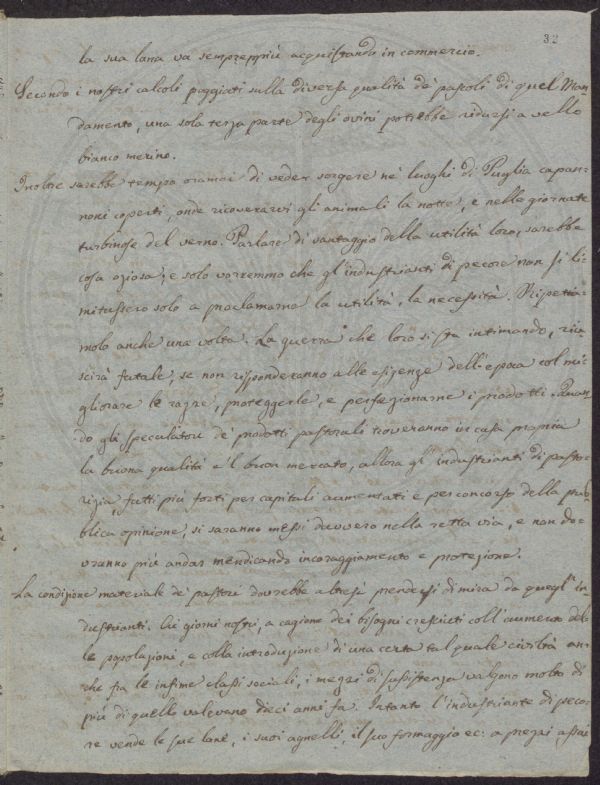 32
la sua lana va semprepiù acquistando in commercio.
Secondo i nostri calcoli poggiati sulla diversa qualità de' pascoli di quel Man-
damento, una sola terza parte degli ovini potrebbe ridursi a vello
bianco merino.
Inoltre sarebbe tempo oramai di veder sorgere ne' luoghi di Puglia capan-
noni coperti, onde ricoverarvi gli animali la notte, e nelle giornate
turbinose del verno. Parlare di vantaggio della utilità loro, sarebbe
cosa oziosa; e solo vorremmo che gl'industrianti di pecore non si li-
mitassero solo a proclamarne la utilità, la necessità. Ripetia-
molo anche una volta. La guerra che loro si sta intimando, riu-
scirà fatale, se non risponderanno alle esigenze dell'epoca col mi-
gliorare le razze, proteggerle, e perfezionarne i prodotti. Quan-
do gli speculatori de' prodotti pastorali troveranno in casa propria
la buona qualità e 'l buon mercato, allora gl'industrianti di pastor-
izia fatti più forti per capitali aumentati e per concorso della pub-
blica opinione, si saranno messi davvero nella retta via, e non do-
vranno più andar mendicando incoraggiamento e protezione.
La condizione materiale de' pastori dovrebbe altresì prendersi di mira da quegl'in-
dustrianti. Ai giorni nostri, a cagione dei bisogni cresciuti coll'aumento del-
le popolazioni, e colla introduzione di una certa tal quale civiltà an-
che fra le infime classi sociali, i mezzi di sussistenza valgono molto di
più di quello valevano dieci anni fa. Intanto l'industriante di peco-
re vende le sue lane, i suoi agnelli, il suo formaggio ec: a prezzi assai